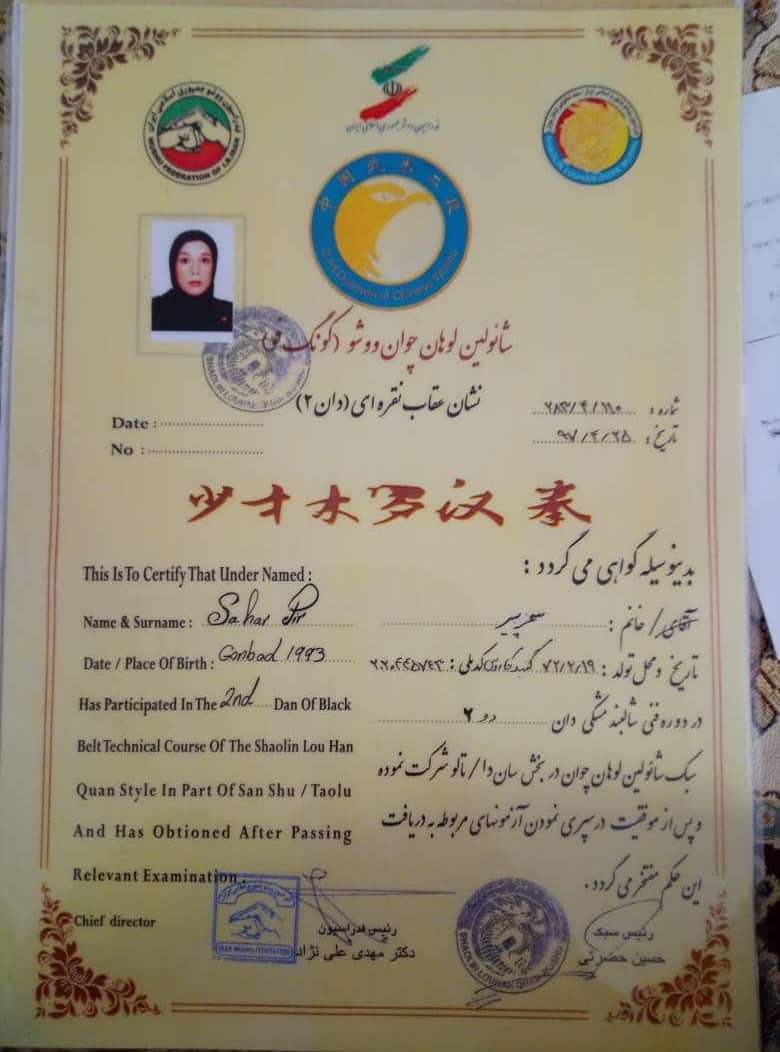 فدراسیون ووشو جمهوری اسلامی ایران
WUSHU FEDERATION OF I.R.IRAN
فدراسیون ووشو جمهوری اسلامی ایران
中国武术二段
2nd Duanwei of Chinese Wushu
شائولین لوهان چوان ووشو (کونگ فو)
نشان عقاب نقره ای (دان ۲)
شماره :
تاریخ : ۹۷/۴/۲۵
Date :
No :
少才木罗汉拳
This Is To Certify That Under Named :
بدینوسیله گواهی می گردد :
Name & Surname : Sahar Pir
آقای / خانم : سحر پیر
Date / Place Of Birth : Gonbad 1993
تاریخ و محل تولد : ۷۲/۲/۱۹ کدملی :
Has Participated In The 2nd Dan Of Black
در دوره فنی شالبند مشکی دان دو ۲
Belt Technical Course Of The Shaolin Lou Han
سبک شائولین لوهان چوان در بخش سان دا / تالو شرکت نموده
Quan Style In Part Of San Shu / Taolu
و پس از موفقیت در سپری نمودن آزمونهای مربوطه به دریافت
And Has Obtioned After Passing
این حکم مفتخر می گردد .
Relevant Examination .
Chief director
رئیس فدراسیون
دکتر مهدی علی نژاد
رئیس سبک
حسین حضرتی